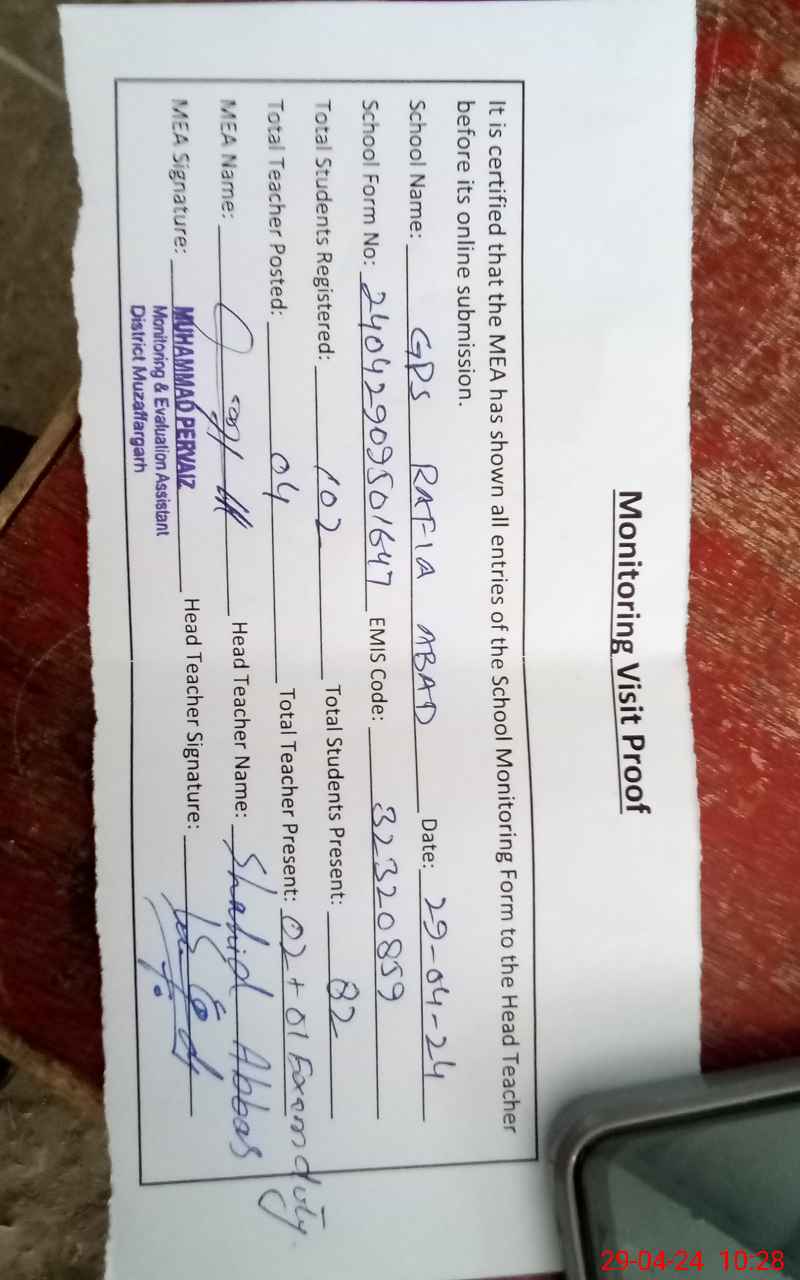 Monitoring Visit Proof
It is certified that the MEA has shown all entries of the School Monitoring Form to the Head Teacher
before its online submission.
School Name: GPS RAFIA ABAD Date: 29-04-24
School Form No: 24042909501647 EMIS Code: 32320859
Total Students Registered: 102 Total Students Present: 82
Total Teacher Posted: 04 Total Teacher Present: 02 + 01 Exam duty
MEA Name: Head Teacher Name: Shahid Abbas
MEA Signature: MUHAMMAD PERVAIZ Head Teacher Signature:
Monitoring & Evaluation Assistant
District Muzaffargarh
29-04-24 10:28